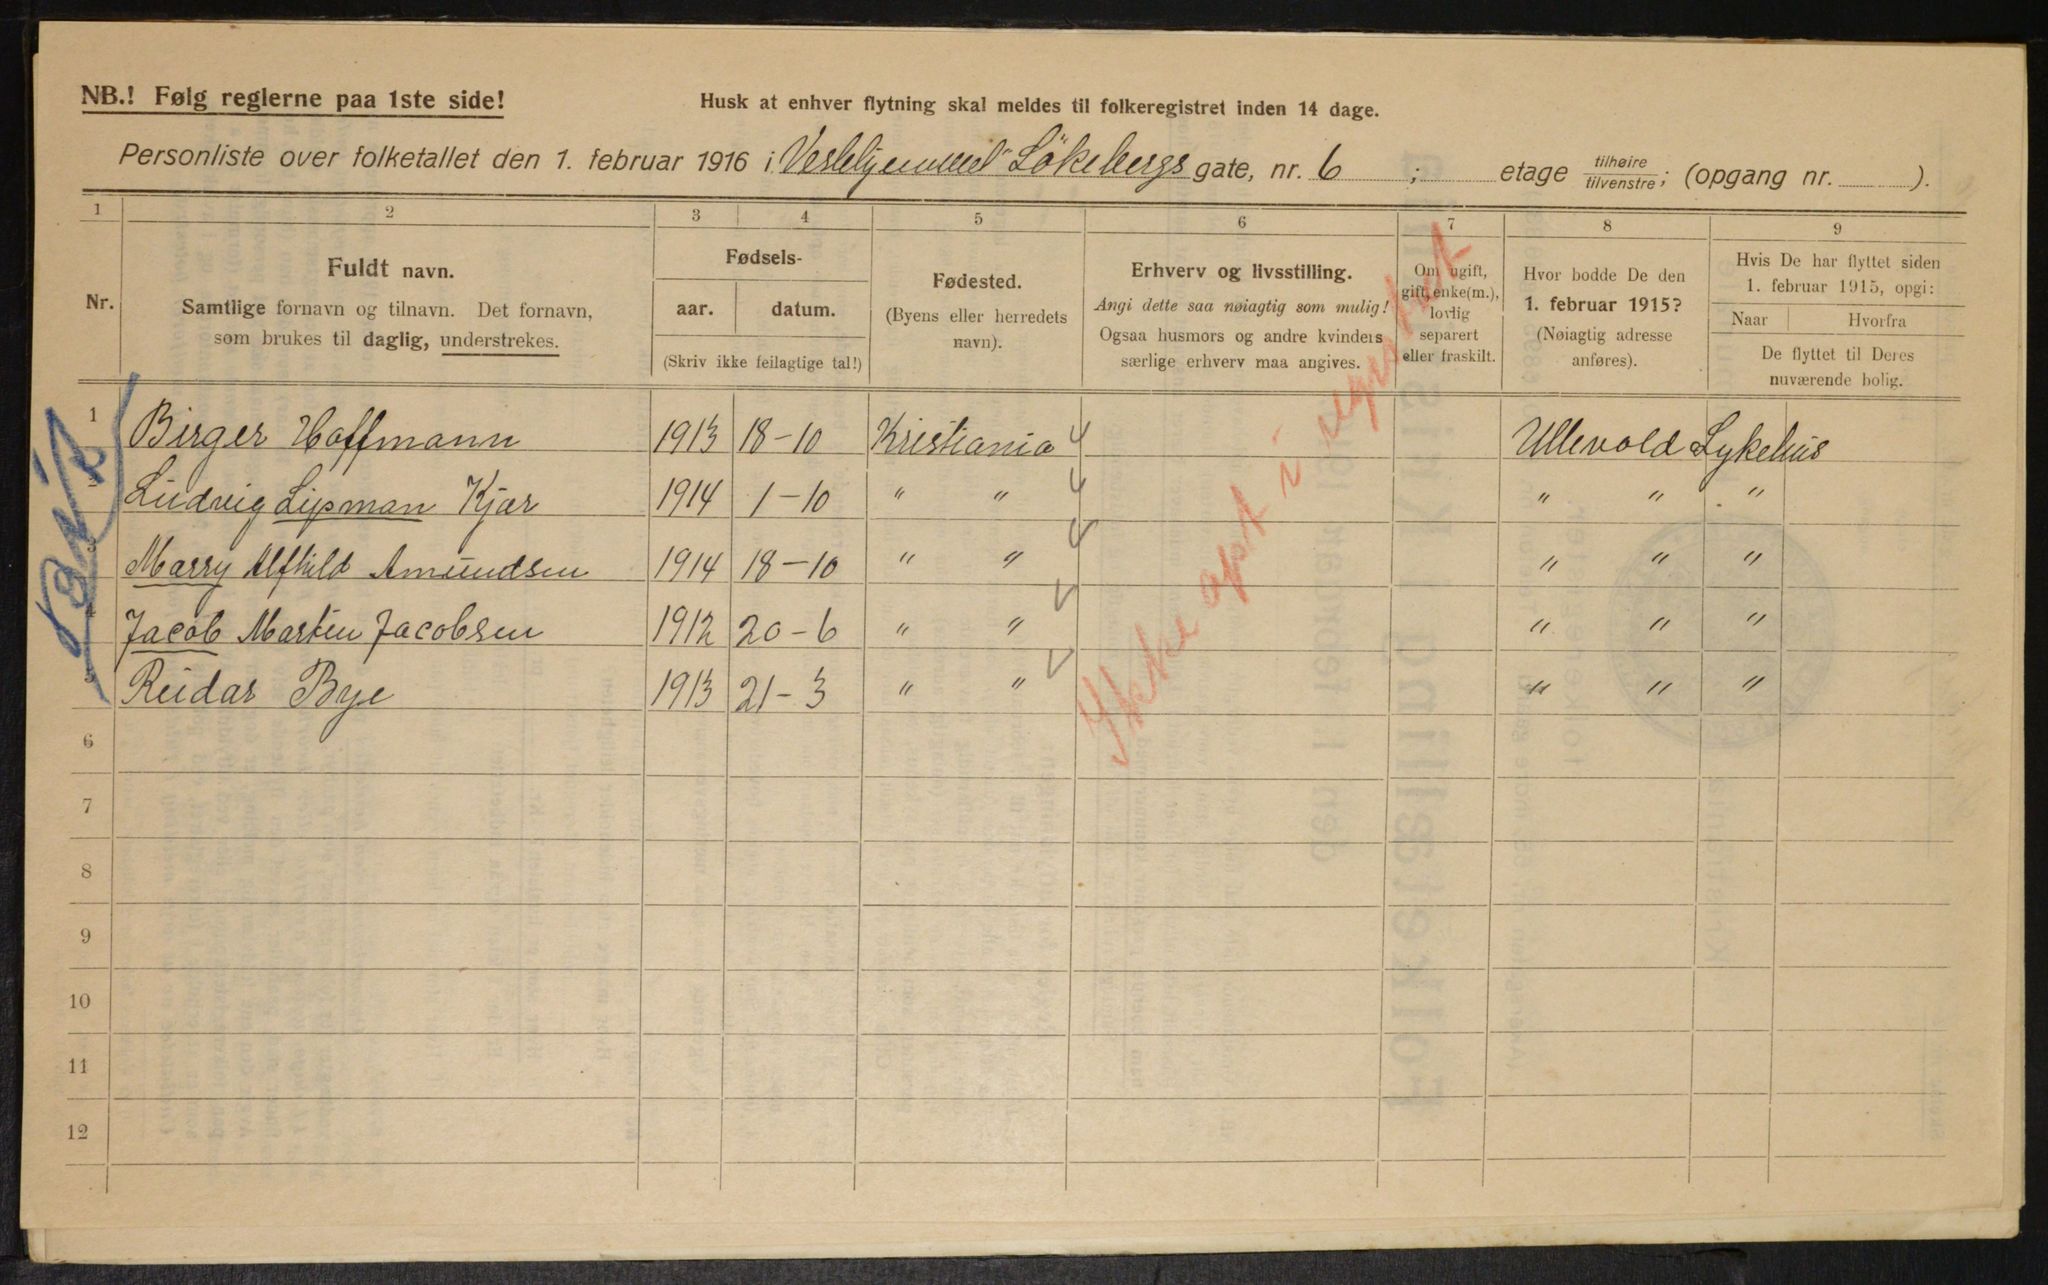 NB.! Følg reglerne paa 1ste side!
Husk at enhver flytning skal meldes til folkeregistret inden 14 dage.
Personliste over folketallet den 1. februar 1916 i Veslehjemmet Lökebergs gate, nr. 6 ; etage tilhøire/tilvenstre; (opgang nr. ).
1 2 3 4 5 6 7 8 9
Nr.
Fuldt navn.
Samtlige fornavn og tilnavn. Det fornavn,
som brukes til daglig, understrekes.
Fødsels-
aar. datum.
(Skriv ikke feilagtige tal!)
Fødested.
(Byens eller herredets
navn).
Erhverv og livsstilling.
Angi dette saa nøiagtig som mulig!
Ogsaa husmors og andre kvinders
særlige erhverv maa angives.
Om ugift,
gift, enke(m.),
lovlig
separert
eller fraskilt.
Hvor bodde De den
1. februar 1915?
(Nøiagtig adresse
anføres).
Hvis De har flyttet siden
1. februar 1915, opgi:
Naar Hvorfra
De flyttet til Deres
nuværende bolig.
1 Birger Hoffmann 1913 18-10 Kristiania Ullevold Sykehus
2 Ludvig Lipman Kjær 1914 1-10 " " " " "
3 Marry Alfhild Amundsen 1914 18-10 " " " " "
4 Jacob Martin Jacobsen 1912 20-6 " " " " "
5 Reidar Bye 1913 21-3 " " " " "
6
7
8
9
10
11
12
Ikke opt i registret